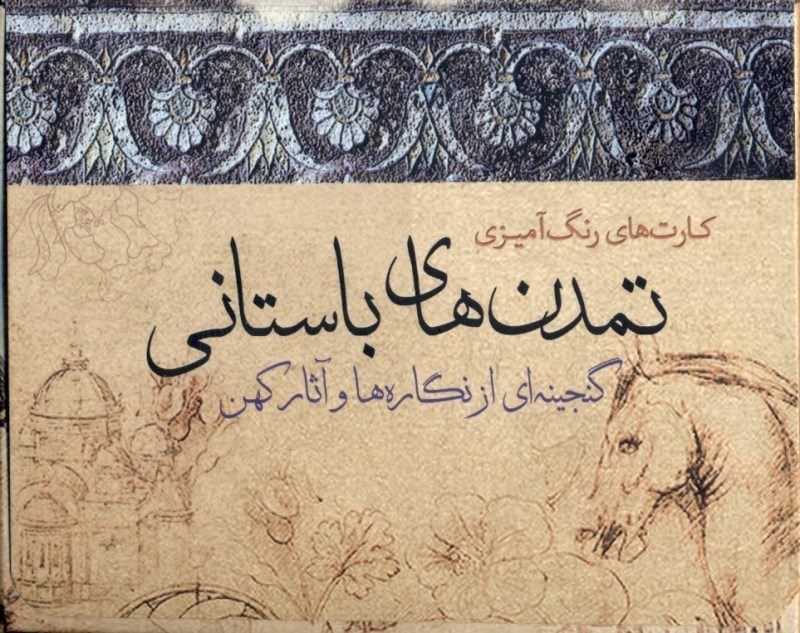 کارت‌های رنگ‌آمیزی
تمدن‌های باستانی
گنجینه‌ای از نگاره‌ها و آثار کهن